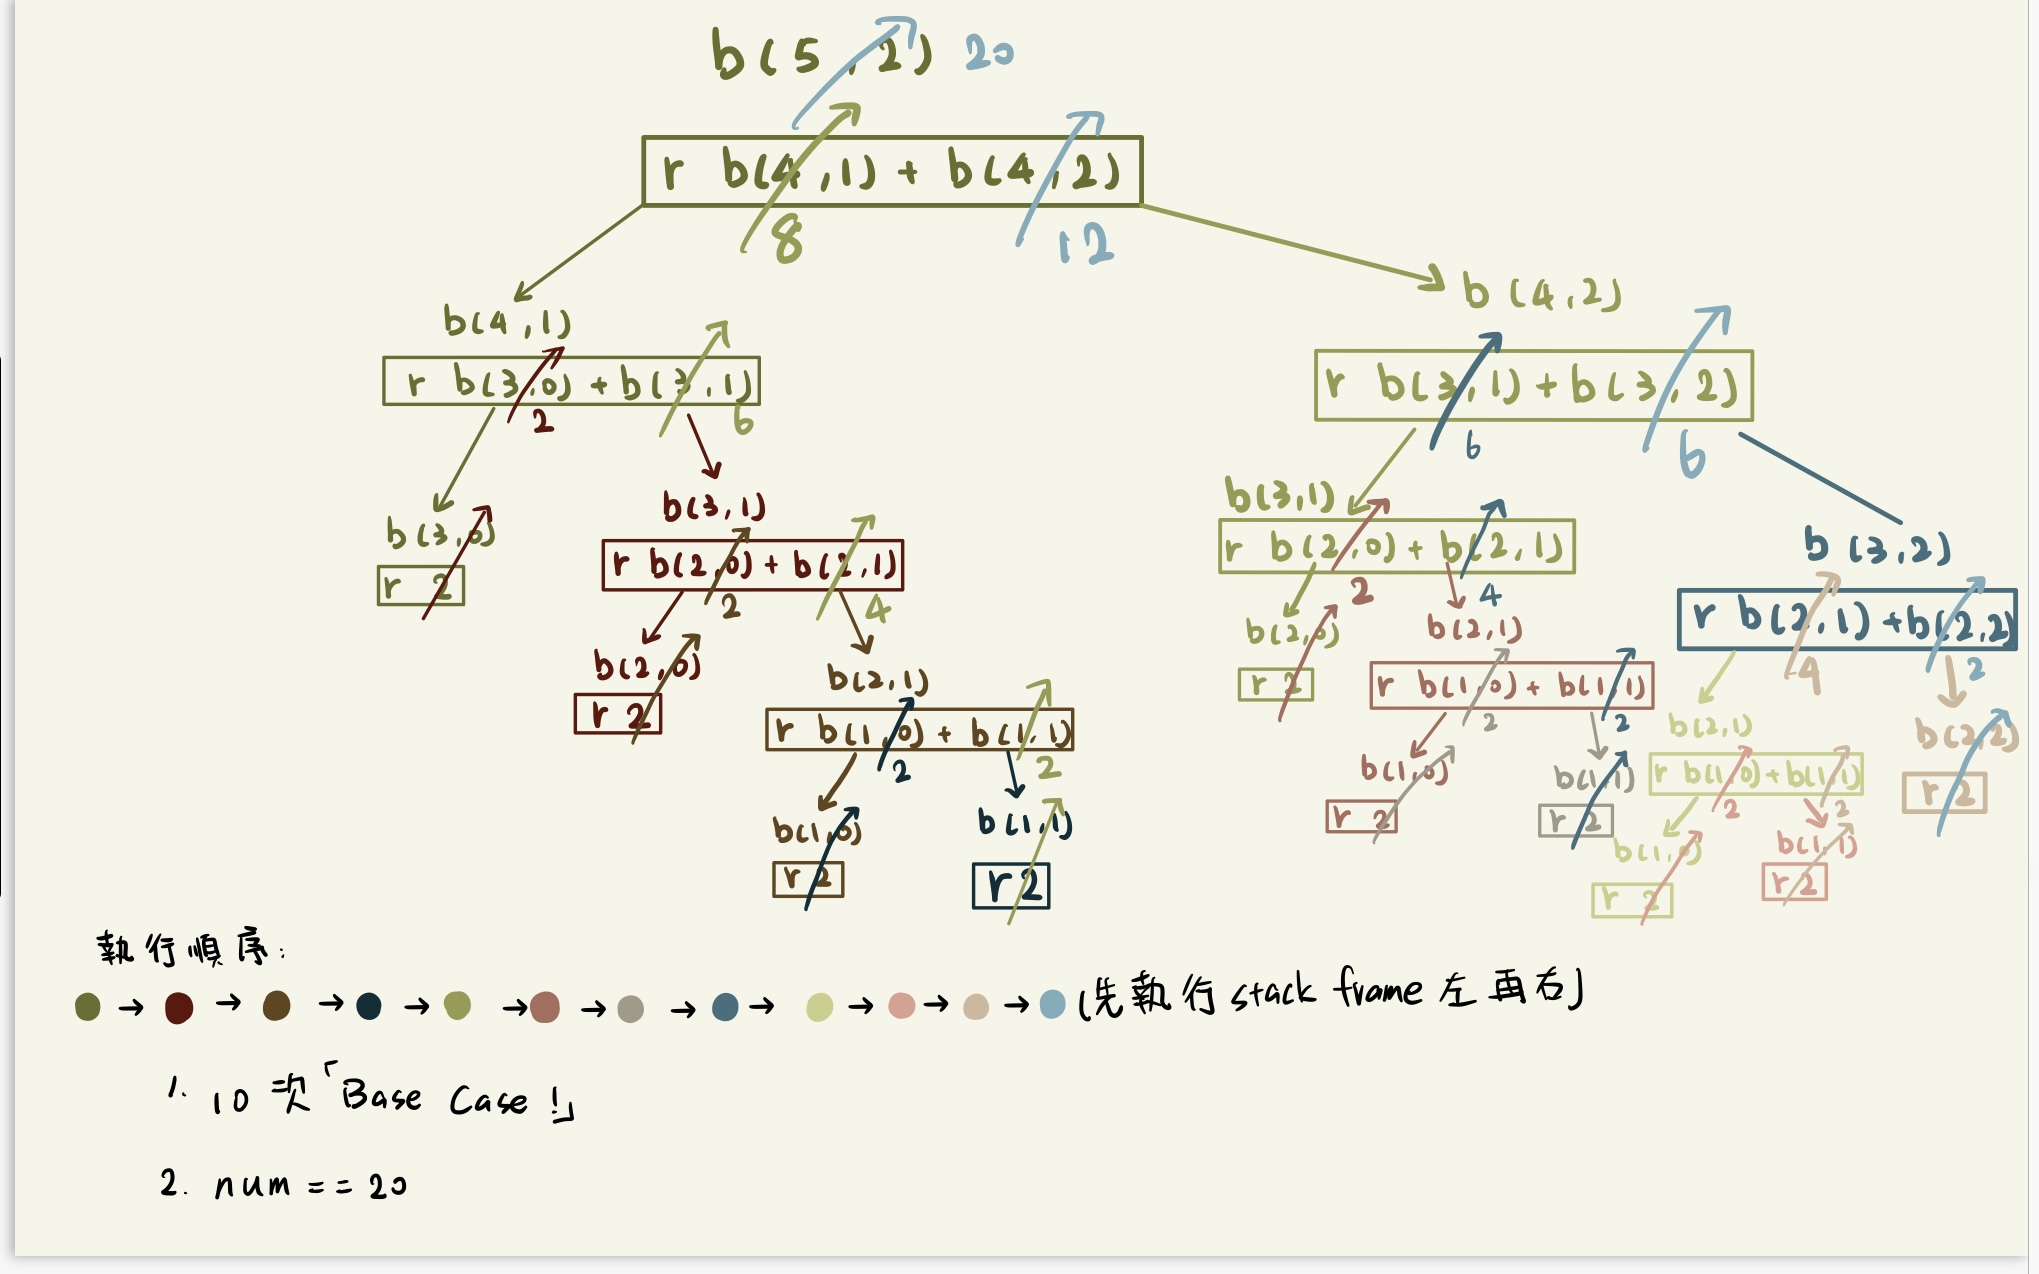 b(5,2) 20
r b(4,1) + b(4,2)
8 12
b(4,2)
b(4,1)
r b(3,0) + b(3,1)
2 6
r b(3,1) + b(3,2)
6 6
b(3,0)
r 2
b(3,1)
r b(2,0) + b(2,1)
2 4
b(2,0)
r 2
b(2,1)
r b(1,0) + b(1,1)
2 2
b(1,0)
r 2
b(1,1)
r 2
b(3,1)
r b(2,0) + b(2,1)
2 4
b(2,0)
r 2
b(2,1)
r b(1,0) + b(1,1)
2 2
b(1,0)
r 2
b(1,1)
r 2
b(3,2)
r b(2,1) + b(2,2)
4 2
b(2,1)
r b(1,0) + b(1,1)
2 2
b(1,0)
r 2
b(1,1)
r 2
b(2,2)
r 2
執行順序:
→ → → → → → → → → → → (先執行 stack frame 左再右)
1. 10 次「Base Case !」
2. num == 20